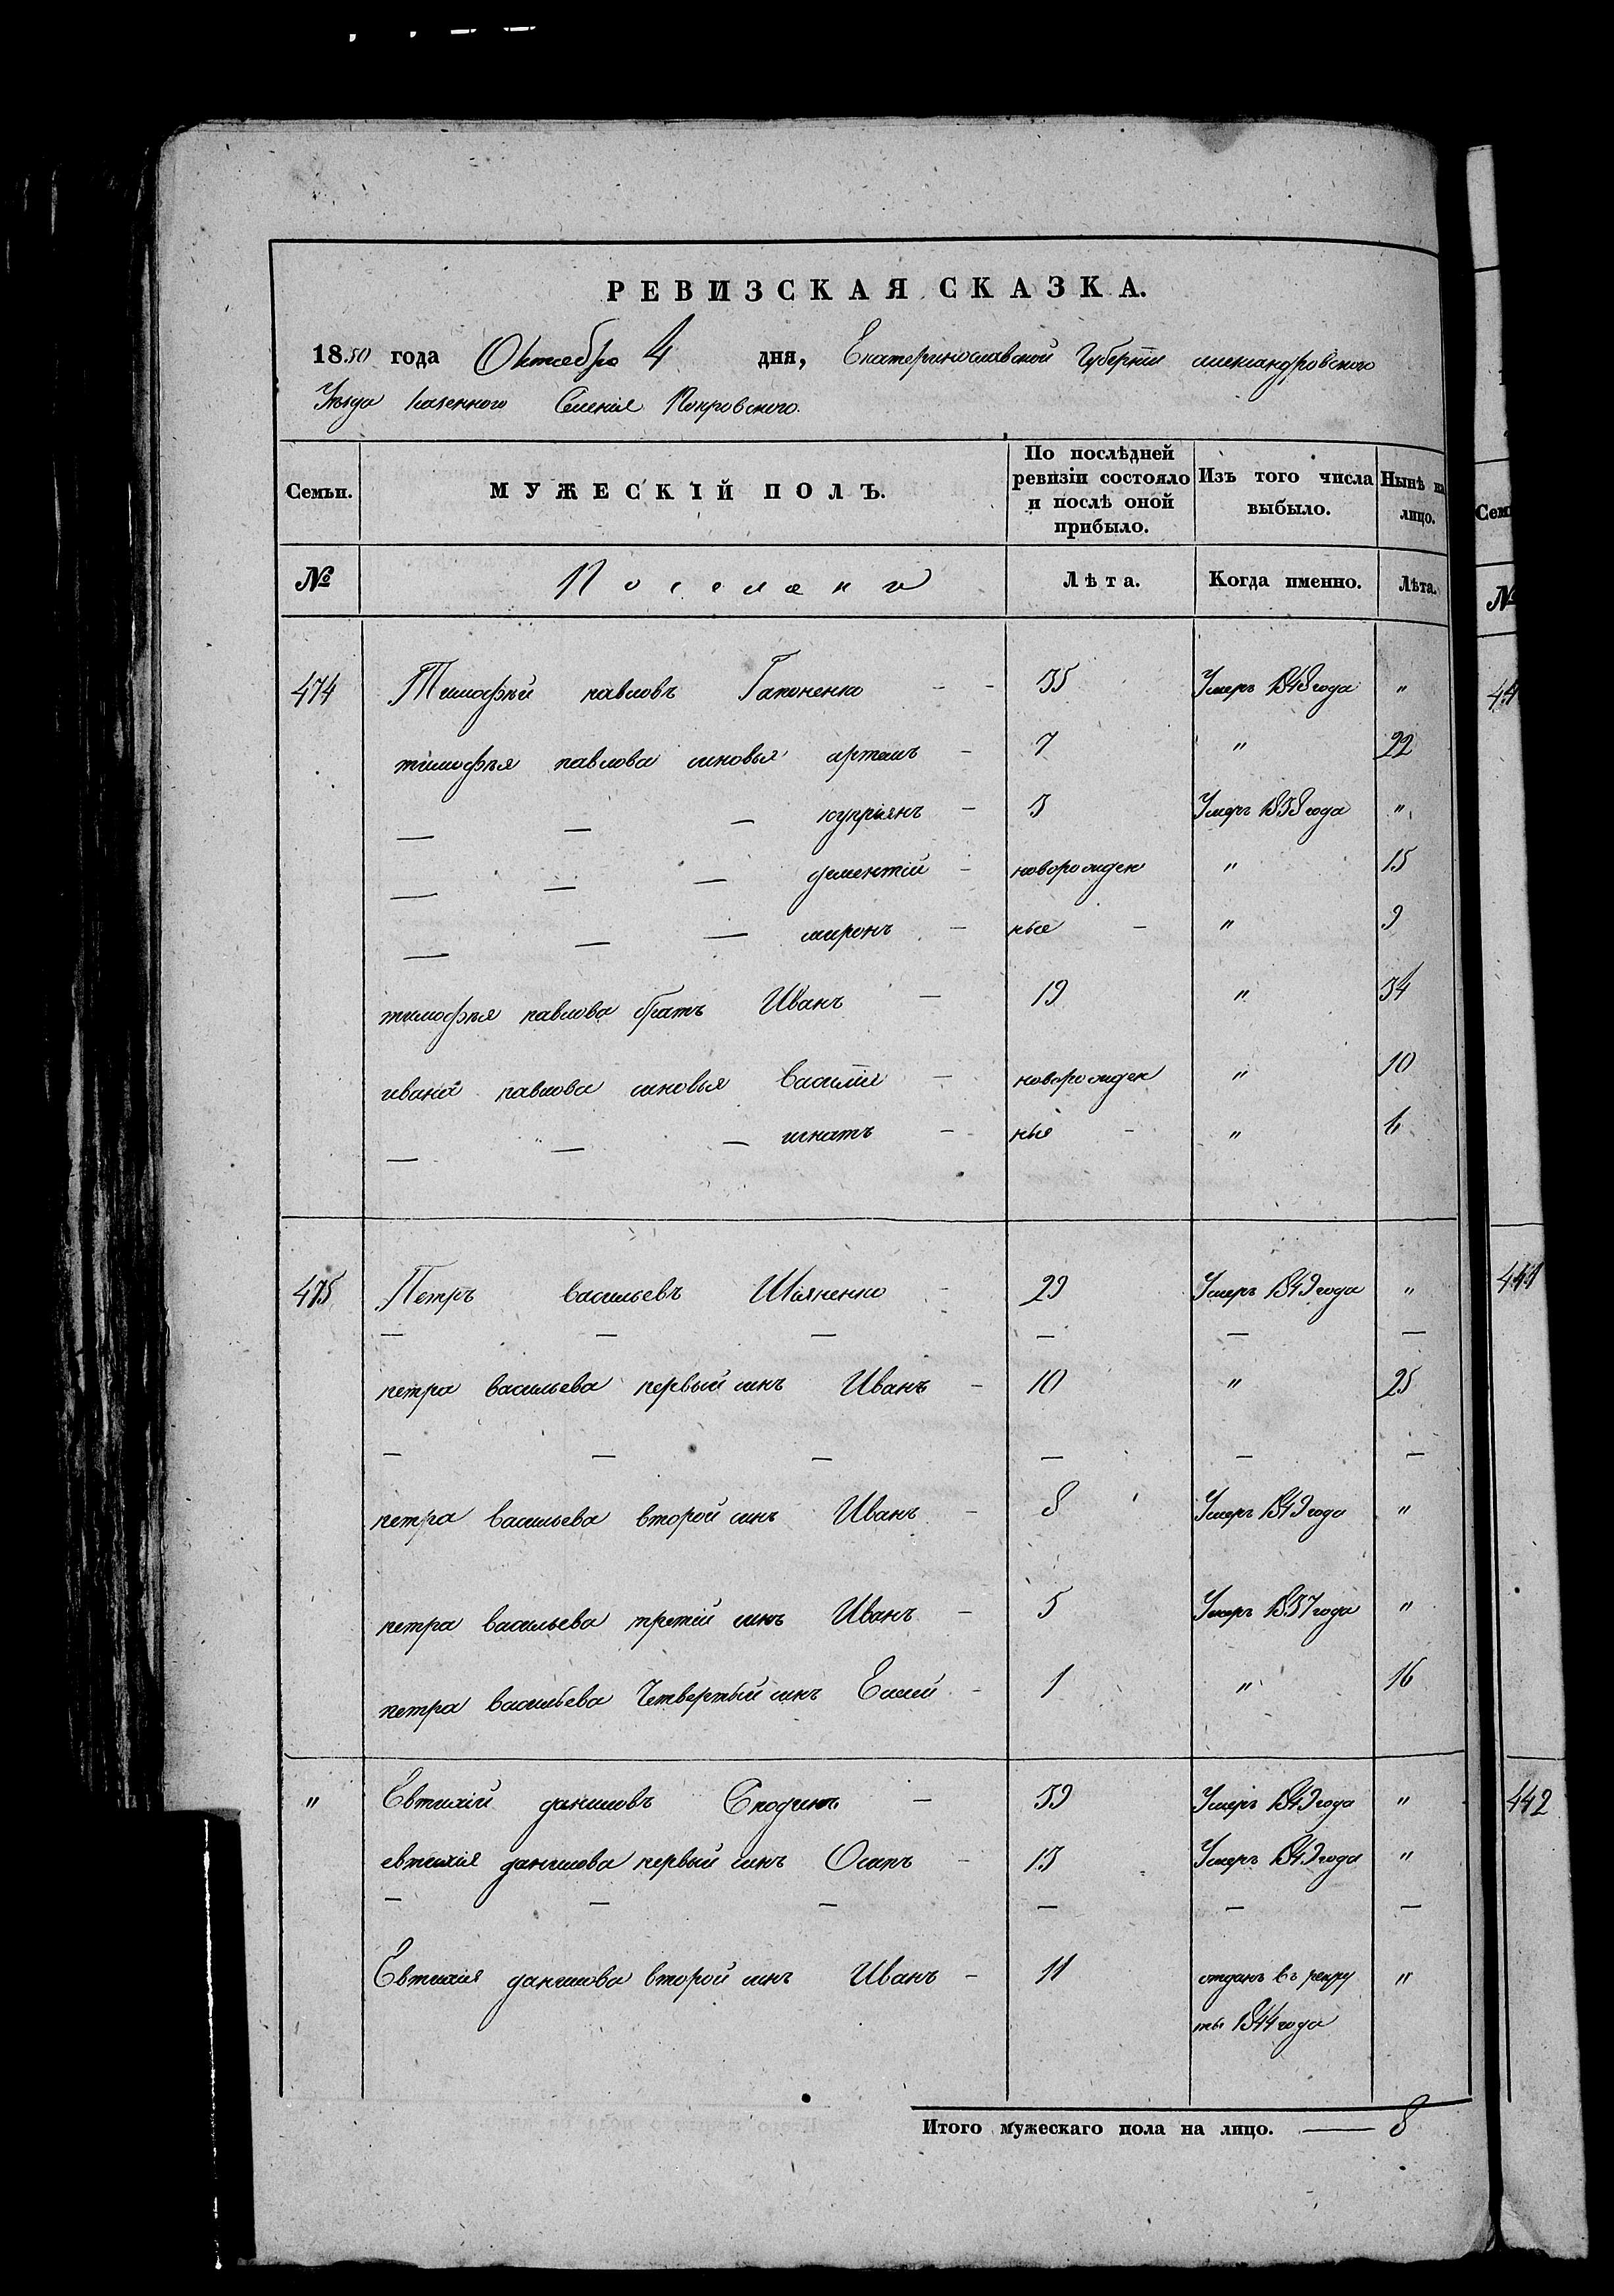 РЕВИЗСКАЯ СКАЗКА.
1850 года Октября 4 дня, Екатеринославской Губернiи александровского
Уѣзда казенного Селенiя Покровского.
Семьи. МУЖЕСКIЙ ПОЛЪ. По послѣдней ревизiи состояло и послѣ оной прибыло. Изъ того числа выбыло. Нынѣ на лицо.
№ Поселяни Лѣта. Когда именно. Лѣта.
474 Тимофѣй павловъ Гапоненко - - 35 Умеръ 1848 года "
тимофѣя павлова синовья артемъ - 7 " 22
— — — купрiянъ - 3 Умеръ 1838 года "
— — — дементiй - новорожден " 15
— — — миронъ - ные - " 9
тимофѣя павлова братъ Иванъ - 19 " 34
ивана павлова синовья Василiй - новорожден " 10
— — — игнатъ - ныя - " 6
475 Петръ васильевъ Шiяненко - 29 Умеръ 1849 года "
— — — — — —
петра васильева первый синъ Иванъ - 10 " 25
— — — — — —
петра васильева второй синъ Иванъ - 8 Умеръ 1849 года "
петра васильева третiй синъ Иванъ - 5 Умеръ 1837 года "
петра васильева Четвертый синъ Елисей - 1 " 16
" Евтихiй даниловъ - 39 Умеръ 1849 года "
евтихiя данилова первый синъ Осипъ - 13 Умеръ 1849 года "
— — — — — —
Евтихия данилова второй синъ Иванъ - 11 отданъ въ рекру "
ты 1844 года
Итого мужескаго пола на лицо. — 8
Сем
№
441
442